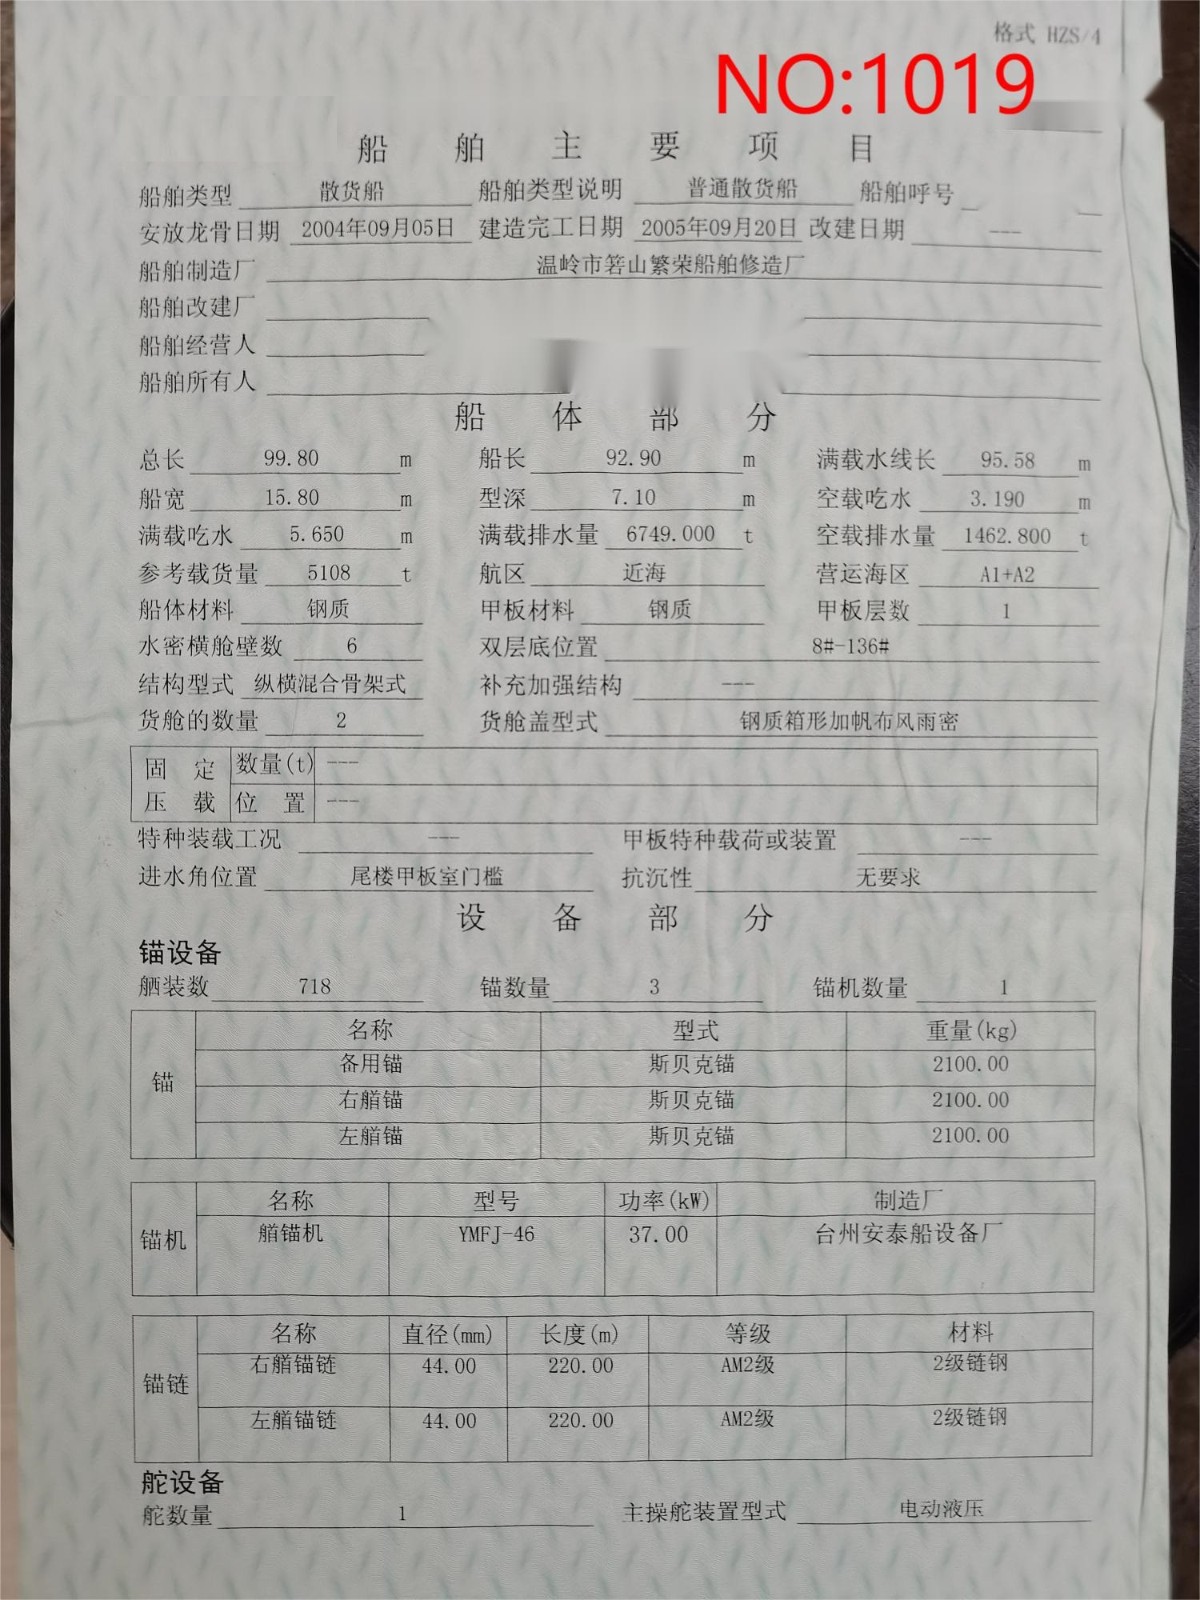 格式 HZS/4
NO:1019
船舶主要项目
船舶类型 散货船 船舶类型说明 普通散货船 船舶呼号
安放龙骨日期 2004年09月05日 建造完工日期 2005年09月20日 改建日期 ---
船舶制造厂 温岭市箬山繁荣船舶修造厂
船舶改建厂
船舶经营人
船舶所有人
船体部分
总长 99.80 m 船长 92.90 m 满载水线长 95.58 m
船宽 15.80 m 型深 7.10 m 空载吃水 3.190 m
满载吃水 5.650 m 满载排水量 6749.000 t 空载排水量 1462.800 t
参考载货量 5108 t 航区 近海 营运海区 A1+A2
船体材料 钢质 甲板材料 钢质 甲板层数 1
水密横舱壁数 6 双层底位置 8#-136#
结构型式 纵横混合骨架式 补充加强结构 ---
货舱的数量 2 货舱盖型式 钢质箱形加帆布风雨密
固定压载 数量(t) ---
位置 ---
特种装载工况 --- 甲板特种载荷或装置 ---
进水角位置 尾楼甲板室门槛 抗沉性 无要求
设备部分
锚设备
舾装数 718 锚数量 3 锚机数量 1
锚 名称 型式 重量(kg)
备用锚 斯贝克锚 2100.00
右艏锚 斯贝克锚 2100.00
左艏锚 斯贝克锚 2100.00
锚机 名称 型号 功率(kW) 制造厂
艏锚机 YMFJ-46 37.00 台州安泰船设备厂
锚链 名称 直径(mm) 长度(m) 等级 材料
右艏锚链 44.00 220.00 AM2级 2级链钢
左艏锚链 44.00 220.00 AM2级 2级链钢
舵设备
舵数量 1 主操舵装置型式 电动液压